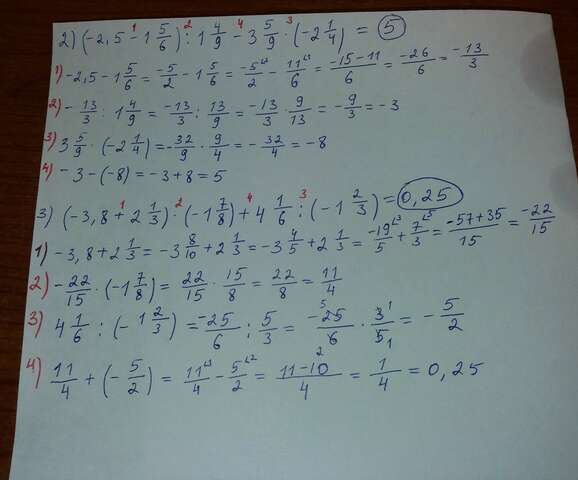 2) (-2,5 - 1 5/6) : 1 4/9 - 3 5/9 · (-2 1/4) = 5
1) -2,5 - 1 5/6 = -5/2 - 1 5/6 = -5/2 - 11/6 = -15-11/6 = -26/6 = -13/3
2) -13/3 : 1 4/9 = -13/3 : 13/9 = -13/3 · 9/13 = -9/3 = -3
3) 3 5/9 · (-2 1/4) = -32/9 · 9/4 = -32/4 = -8
4) -3 - (-8) = -3 + 8 = 5
3) (-3,8 + 2 1/3) · (-1 7/8) + 4 1/6 : (-1 2/3) = 0,25
1) -3,8 + 2 1/3 = -3 8/10 + 2 1/3 = -3 4/5 + 2 1/3 = -19/5 + 7/3 = -57+35/15 = -22/15
2) -22/15 · (-1 7/8) = 22/15 · 15/8 = 22/8 = 11/4
3) 4 1/6 : (-1 2/3) = -25/6 : 5/3 = -25/6 · 3/5 = -5/2
4) 11/4 + (-5/2) = 11/4 - 5/2 = 11-10/4 = 1/4 = 0,25